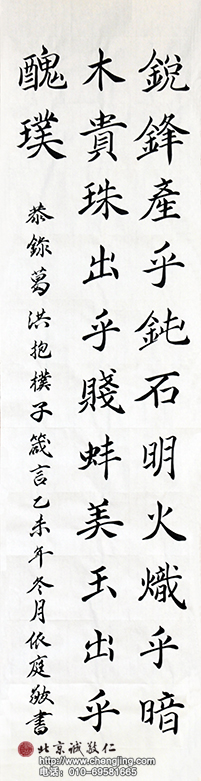 銳鋒產乎鈍石明火熾乎暗
木貴珠出乎賤蚌美玉出乎
醜璞
恭錄葛洪抱樸子箴言乙未年冬月依庭敬書
北京诚敬仁
www.chengjing.com
电话：010-69581665